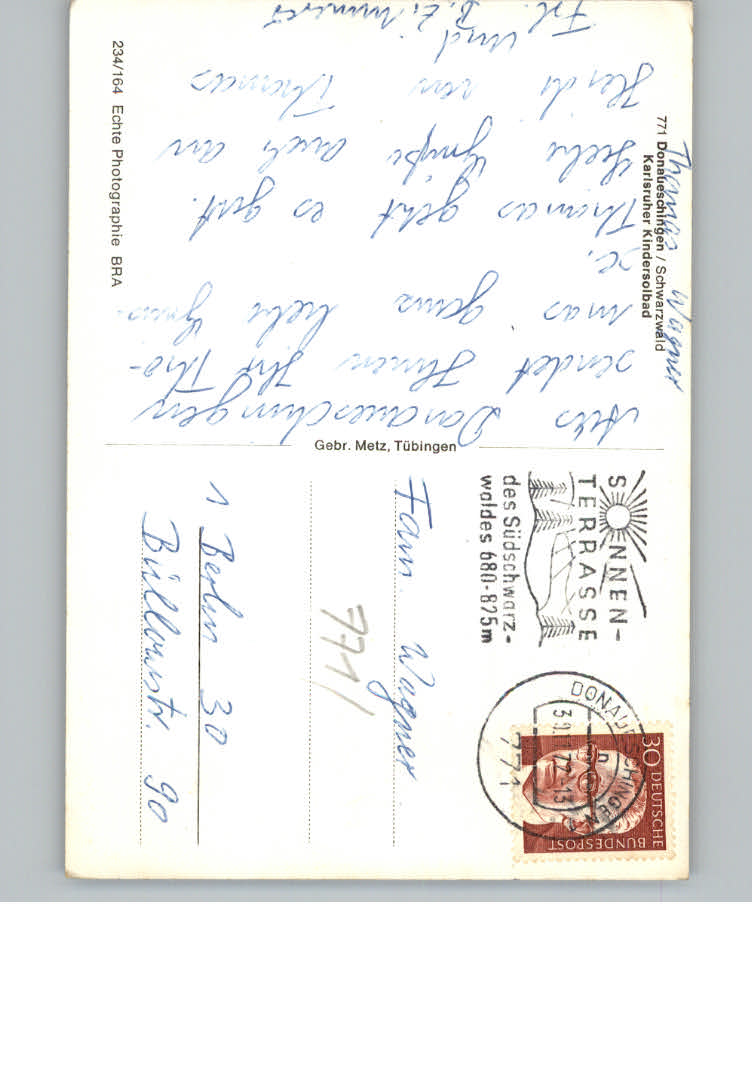 771 Donaueschingen / Schwarzwald
Karlsruher Kindersolbad
Thomas Wagner
Aus Donaueschingen
sendet Ihnen Ihr Tho-
mas ganz liebe Grüs-
se.
Thomas geht es gut.
Liebe Grüße auch an
Heidi von Thomas
und
Frl. B. Zimmerer
234/164 Echte Photographie BRA
Gebr. Metz, Tübingen
SONNEN-
TERRASSE
des Südschwarz-
waldes 680-875m
DONAUESCHINGEN
771
30 DEUTSCHE
BUNDESPOST
Fam. Wagner
771
1 Berlin 30
Bülowstr. 90